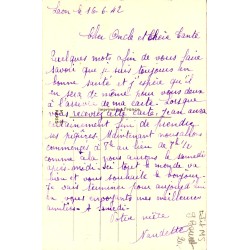 Laon le 16.6.42
Cher Oncle et chère Tante
Quelques mots afin de vous faire
savoir que je suis toujours en
bonne santé et j'espère qu'il
en sera de même pour vous deux
à l'arrivée de ma carte. Lorsque
vous recevrez cette carte, Jean aura
certainement fini de
ses piqûres. Maintenant nous allons
commencer à 7h au lieu de 7h ½
comme cela nous aurons le samedi
après-midi.
et vous souhaite le bonjour.
Je vais terminer pour aujourd'hui
en vous envoyant mes meilleures
amitiés. A samedi.
Votre nièce